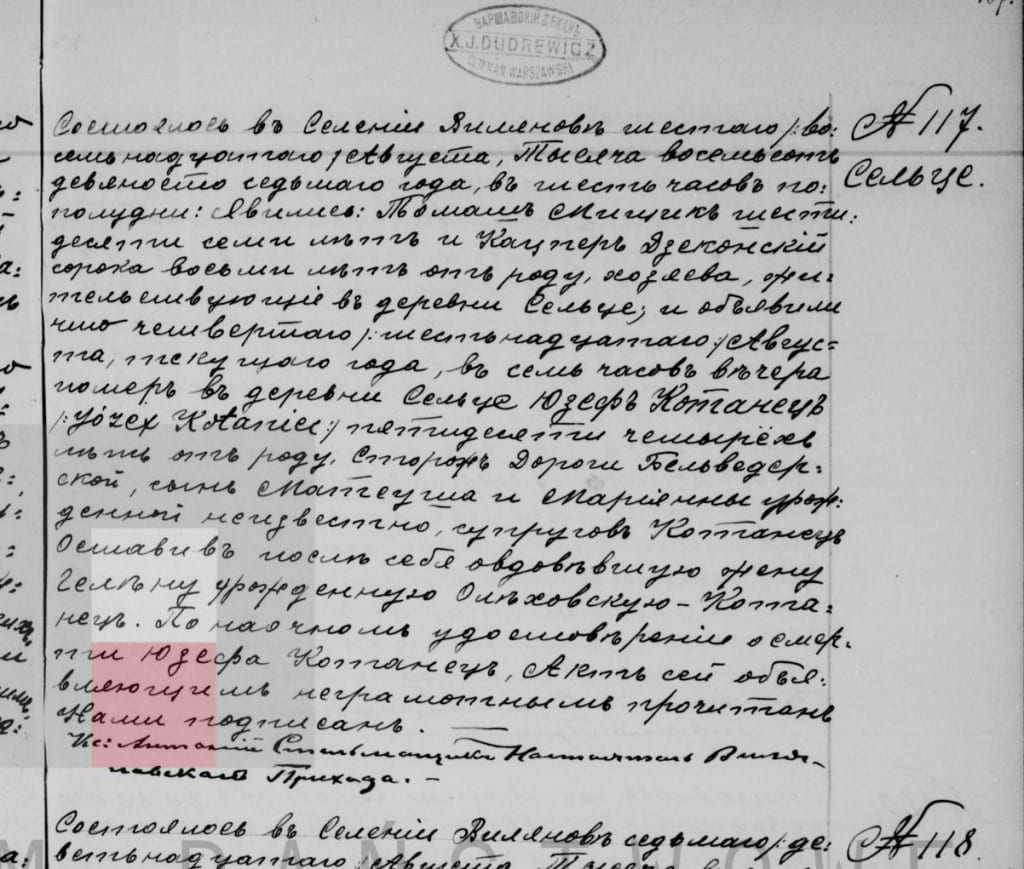 ВАРШАВСКІЙ ДЕКАНЪ
X.J.DUDREWICZ
DZIEKAN WARSZAWSKI
№ 117.
Сельце.
Состоялось въ Селеніи Виляновѣ шестаго /:во:
семьнадцатаго/ Августа, Тысяча восемьсотъ
девяносто седьмаго года, въ шесть часовъ по:
полудни: Явились: Томашъ Мищикъ шести:
десяти семи лѣтъ и Кацперъ Дзеконскій
сорока восьми лѣтъ отъ роду, хозяева, жи-
тельствующіе въ деревни Сельце, и объявили
что четвертаго /:шестьнадцатаго:/ Авгус=
та, текущаго года, въ семь часовъ вѣчера
померъ въ деревни Сельце Юзефъ Котанецъ
/:Józef Kotaniec:/ пятидесяти четырёхъ
лѣтъ отъ роду, Сторожъ Дороги Бельведер=
ской, сынъ Матеуша и Маріянны урож:
денной неизвестно, супруговъ Котанецъ
Оставивъ послѣ себя овдовѣвшую жену
Гелѣну урожденную Ольховскую - Кота=
нецъ. По наочномъ удостовѣреніи о смер=
ти Юзефа Котанецъ, Актъ сей объя:
вляющимъ неграмотнымъ прочитанъ
Нами подписанъ.
Кс: Антоній Настоятель Виля-
новскаго Прихода. -
№ 118
Состоялось въ Селеніи Виляновѣ седьмаго /:де=
вятьнадцатаго/ Августа, Тысяча